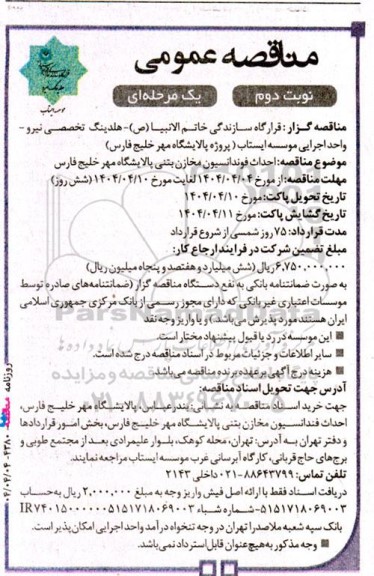 مناقصه عمومی
نوبت دوم
یک مرحله‌ای
مناقصه گزار: قرارگاه سازندگی خاتم الانبیا (ص) - هلدینگ تخصصی نیرو -
واحد اجرایی موسسه ایستاب (پروژه پالایشگاه مهر خلیج فارس)
موضوع مناقصه: احداث فونداسیون مخازن بتنی پالایشگاه مهر خلیج فارس
مهلت مناقصه: از مورخ ۱۴۰۴/۰۴/۰۴ لغایت مورخ ۱۴۰۴/۰۴/۱۰ (شش روز)
تاریخ تحویل پاکت: مورخ ۱۴۰۴/۰۴/۱۰
تاریخ گشایش پاکت: مورخ ۱۴۰۴/۰۴/۱۱
مدت قرارداد: ۷۵ روز شمسی از شروع قرارداد
مبلغ تضمین شرکت در فرایند ارجاع کار:
۶,۷۵۰,۰۰۰,۰۰۰ ریال (شش میلیارد و هفتصد و پنجاه میلیون ریال)
به صورت ضمانتنامه بانکی به نفع دستگاه مناقصه گزار (ضمانتنامه‌های صادره توسط
موسسات اعتباری غیر بانکی که دارای مجوز رسمی از بانک مرکزی جمهوری اسلامی
ایران هستند مورد پذیرش می‌باشد) و یا واریز وجه نقد
این موسسه در رد یا قبول پیشنهاد مختار است.
سایر اطلاعات و جزئیات مربوط در اسناد مناقصه درج شده است.
هزینه درج آگهی بر عهده برنده مناقصه می‌باشد.
آدرس جهت تحویل اسناد مناقصه:
جهت خرید اسناد مناقصه به نشانی: بندرعباس، پالایشگاه مهر خلیج فارس،
احداث فندانسیون مخازن بتنی پالایشگاه مهر خلیج فارس، بخش امور قراردادها
و دفتر تهران به آدرس: تهران، محله کوهک، بلوار علیمرادی بعد از مجتمع طوبی و
برج‌های حاج قربانی، کارگاه آبرسانی غرب موسسه ایستاب مراجعه نمایند.
تلفن تماس: ۸۸۶۴۳۷۹۹-۰۲۱ داخلی ۲۱۴۳
دریافت اسناد فقط با ارائه اصل فیش واریز وجه به مبلغ ۲,۰۰۰,۰۰۰ ریال به حساب
۵۱۵۱۷۱۸۰۶۹۰۰۳ - شماره شباء IR۷۴۰۱۵۰۰۰۰۰۵۱۵۱۷۱۸۰۶۹۰۰۳
بانک سپه شعبه ملاصدرا تهران در وجه تنخواه درآمد واحد اجرایی امکان پذیر است.
وجه مذکور به هیچ عنوان قابل استرداد نمی‌باشد.